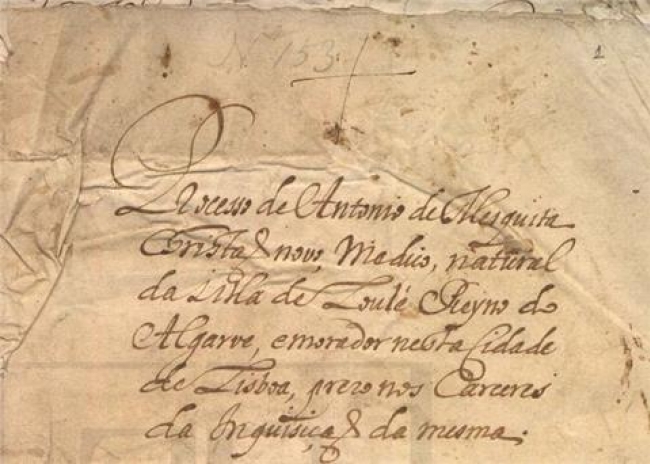 N. 133
1
Processo de Antonio de Mesquita
Cristaõ novo, Medico, natural
da Villa de Loulé Reyno do
Algarve, e morador nesta Cidade
de Lisboa, prezo nos Carceres
da Inquisiçaõ da mesma.